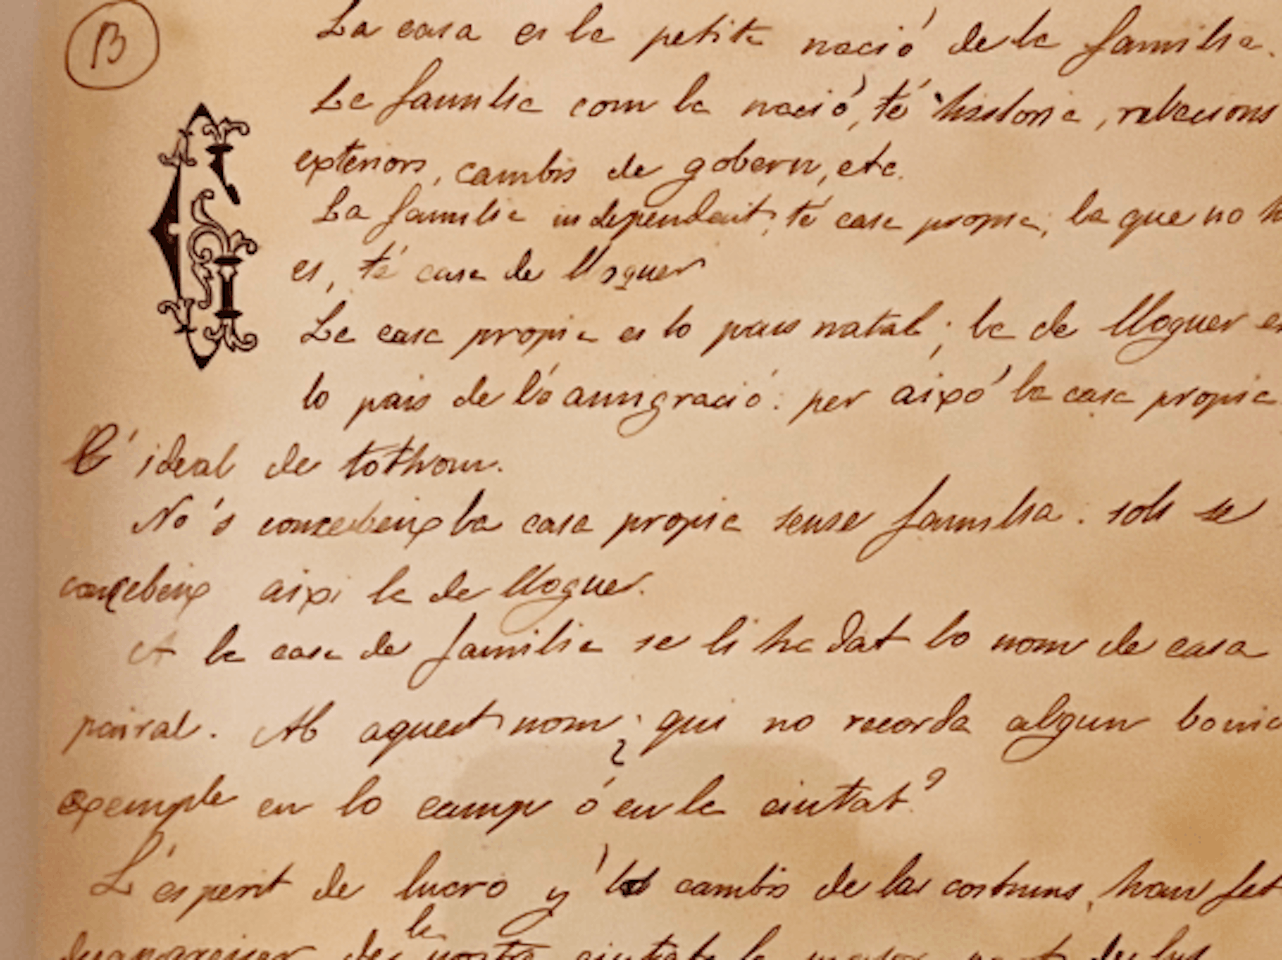 B
La casa es la petita nació de la familia.
La familia com la nació, té historia, relacions
exteriors, cambis de gobern, etc.
La familia independent, té casa propia; la que no h
es, té casa de lloguer
La casa propia es lo pais natal; la de lloguer es
lo pais de la amigració: per aixó la casa propia
l'ideal de tothom.
No's concebeix la casa propia sense familia. sols se
concebeix aixi la de lloguer.
A la casa de familia se li ha dat lo nom de casa
pairal. Ab aquest nom, ¿qui no recorda algun bonic
exemple en lo camp ó en la ciutat?
L'esperit de lucro y'ls cambis de las costums, han fet
la
desapareixer de nostra ciutat la major part de las